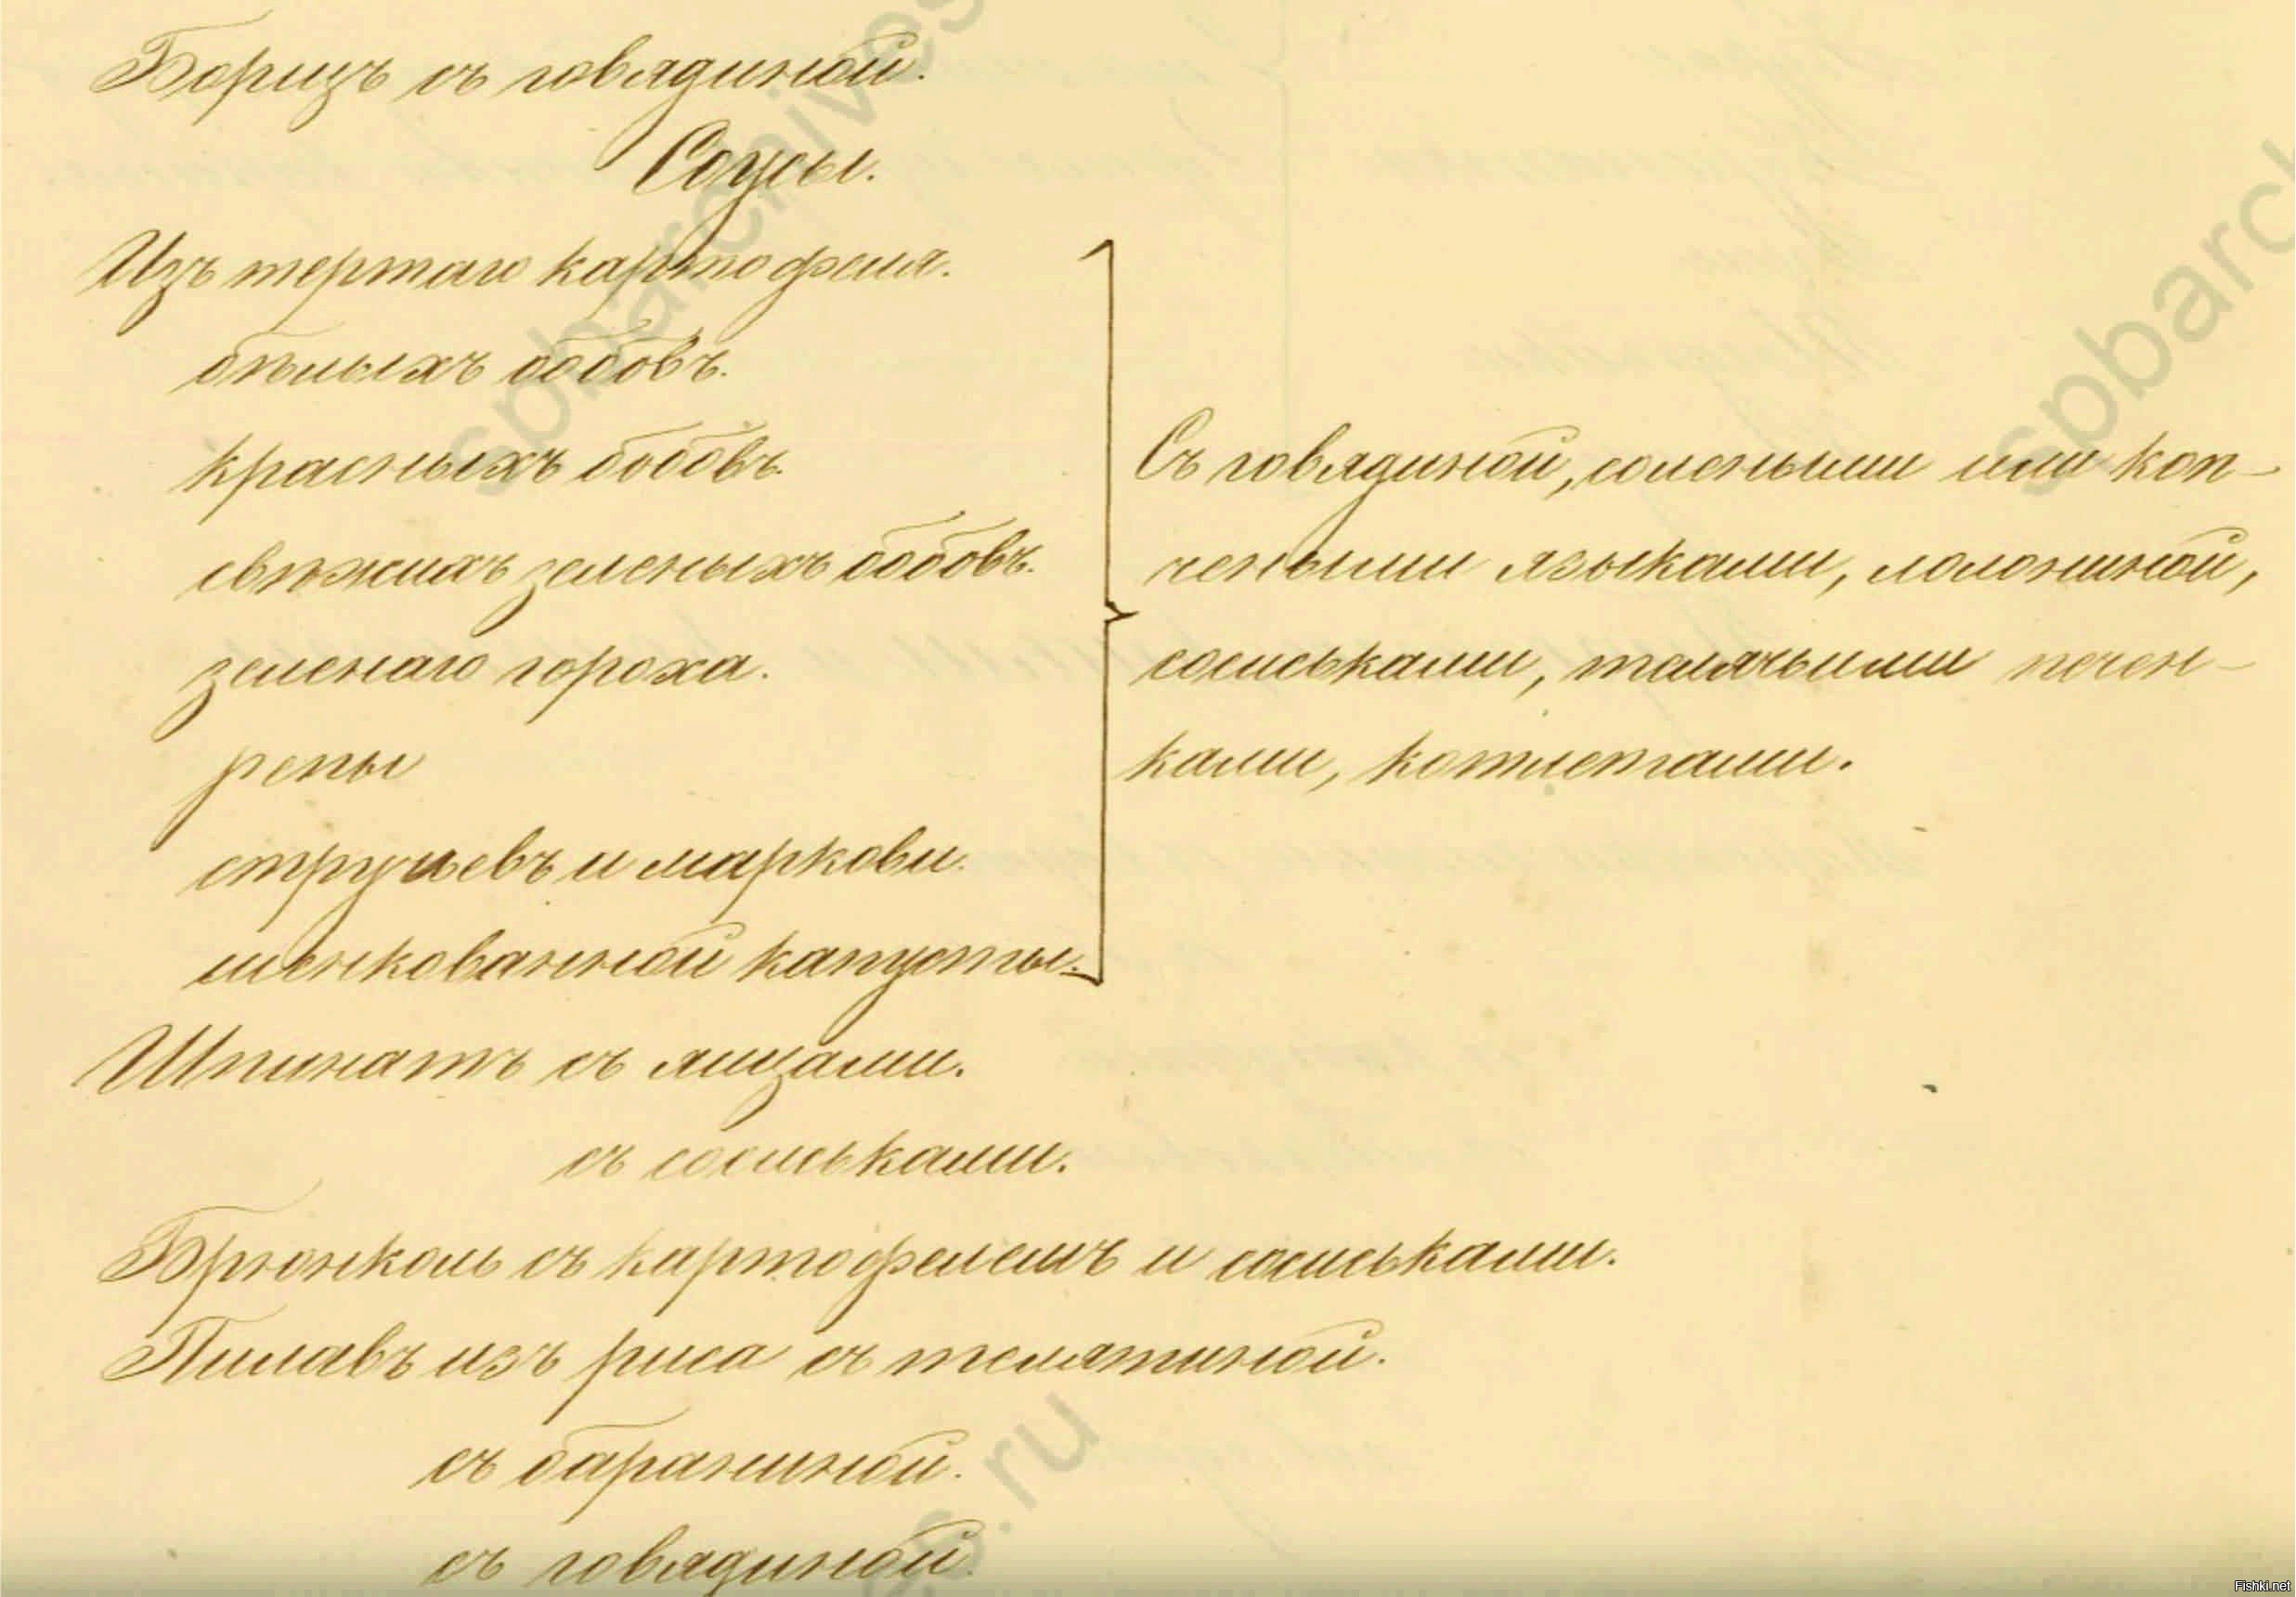 Борщъ съ говядиной.
Соусы.
Изъ тертаго картофеля.
бѣлыхъ бобовъ.
красныхъ бобовъ.
свѣжихъ зеленыхъ бобовъ.
зеленаго гороха.
репы
стручьевъ и маркови.
шенкованной капусты.
Съ говядиной, солеными или коп-
чеными языками, солониной,
сосиськами, телячьими печен-
ками, котлетами.
Шпинатъ съ яицами.
съ сосиськами.
Брюнколь съ картофелемъ и сосиськами.
Пилавъ изъ риса съ телятиной.
съ бараниной.
съ говядиной.
spbarchives
spbarch
es.ru
Fishki.net